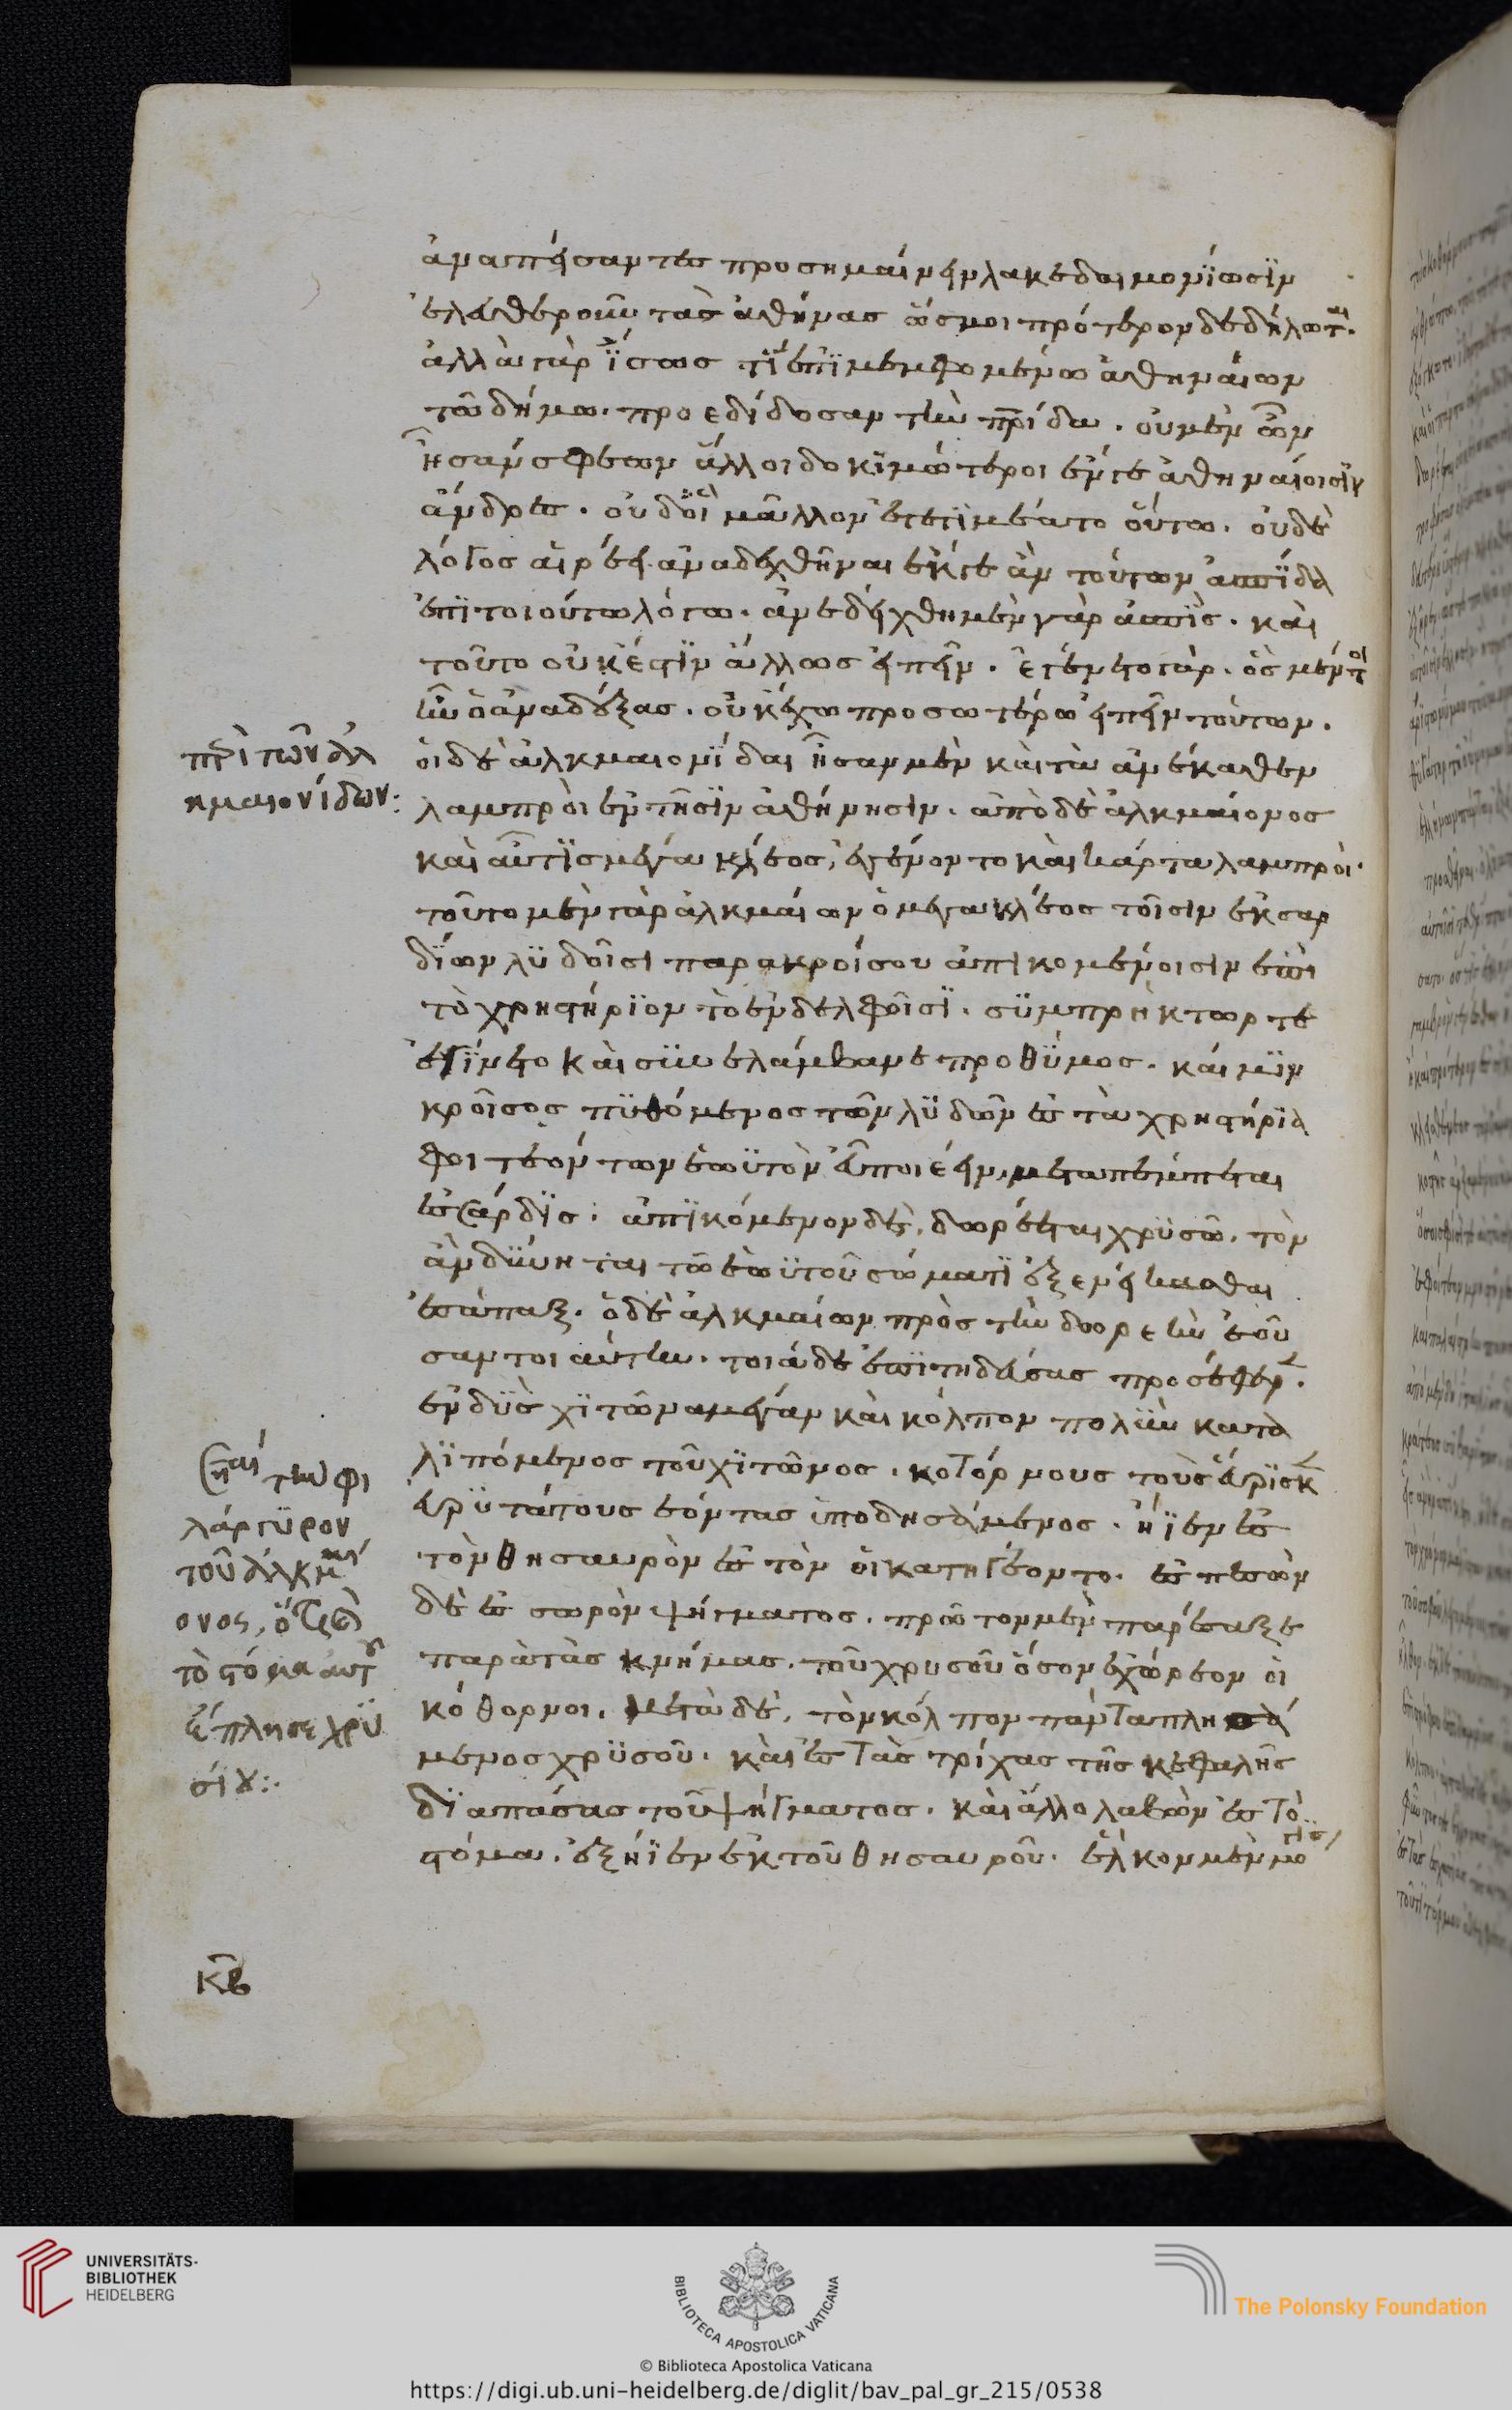 ἀναπείσαντες προσημαίνειν λακεδαιμονίωσϊν
ἐλευθεροῦν τὰς ἀθήνας ὥς μοι πρότερον δεδήλωτ(αι).
ἀλλὰ γὰρ ἴσως τϊ ἐπϊμεμφομένω ἀθηναίων
τῶ δήμω. προεδίδοσαν τὴν πρίδα. οὐ μὲν ὦν
ἦσάν σφεων ἄλλοι δοκϊμώτεροι ἔν τε ἀθηναίοισϊν
ἄνδρες. οὐδ' οἳ μᾶλλον ἐτετϊμέατο οὕτω. οὐδὲ
λόγος αἱρέει ἀναδεχθῆναι ἔκ τε ἂν τούτων ἀσπΐδα
ἐπϊ τοιούτω λόγω. ἀνεδείχθη μὲν γὰρ ἀσπΐς. καὶ
τοῦτο οὐκ ἔστϊν ἄλλως εἰπεῖν. ἐγένετο γάρ. ὃς μέντοι
ἦν ὁ ἀναδέξας. οὐκ ἔχω προσωτέρω εἰπεῖν τούτων.
οἱ δὲ ἀλκμαιονΐδαι ἦσαν μὲν καὶ τὰ ἀνέκαθεν
λαμπροὶ ἐν τῆσϊν ἀθήνησιν. ἀπὸ δὲ ἀλκμαίονος
καὶ αὖτϊς μεγακλέος, ἐγένοντο καὶ κάρτα λαμπροὶ.
τοῦτο μὲν γὰρ ἀλκμαίων ὁ μεγακλέος τοῖσιν ἐκ σαρ
δΐων λϋδοῖσι παρα κροίσου ἀπικομένοισιν ἐπὶ
τὸ χρηστήρϊον τὸ ἐν δελφοῖσϊ. σϋμπρήκτωρ τε
ἐγΐνετο καὶ συνελάμβανε προθΰμος. καί μϊν
κροῖσος πϋθόμενος τῶν λϋδῶν ἐς τὰ χρηστήρϊα
φοιτεόντων ἑωϋτὸν εὖ ποιέειν, μεταπέμπεται
ἐς σάρδϊς. ἀπϊκόμενον δὲ, δωρέεται χρϋσῶ, τὸν
ἂν δΰνηται τῶ ἑωϋτοῦ σώματϊ ἐξενείκασθαι
ἐσάπαξ. ὁ δὲ ἀλκμαίων πρὸς τὴν δωρεὴν ἐοῦ
σαν τοιαύτην. τοιάδε ἐπϊτηδεύσας προσέφερε.
ἐνδϋὲς χϊτῶνα μέγαν καὶ κόλπον πολὺν κατα
λϊπόμενος τοῦ χϊτῶνος. κοθόρνους τοὺς εὕρϊσκε
εὐρϋτάτους ἐόντας ὑποδησάμενος. ἤϊεν ἐς
τὸν θησαυρὸν ἐς τόν οἱ κατηγέοντο. ἐς πεσὼν
δὲ ἐς σωρὸν ψήγματος. πρῶτον μὲν παρέσαξε
παρὰ τὰς κνήμας. τοῦ χρυσοῦ ὅσον ἐχώρεον οἱ
κόθορνοι. μετὰ δὲ, τὸν κόλπον πάντα πλησά
μενος χρϋσοῦ. καὶ ἐς τὰς τρίχας τῆς κεφαλῆς
δϊαπάσας τοῦ ψήγματος. καὶ ἄλλο λαβὼν ἐς τὸ
στόμα. ἐξήϊεν ἐκ τοῦ θησαυροῦ. ἕλκων μὲν μόγις
περὶ τῶν ἀλ
κμαιονίδων:
τὴν φι
λάργϋρον
τοῦ ἀλκμαί
ονος, ὅτι καὶ
τὸ στόμα αὐτοῦ
ἔπλησε χρϋ
σίου:.
κβ
UNIVERSITÄTS-
BIBLIOTHEK
HEIDELBERG
BIBLIOTECA APOSTOLICA VATICANA
© Biblioteca Apostolica Vaticana
The Polonsky Foundation
https://digi.ub.uni-heidelberg.de/diglit/bav_pal_gr_215/0538